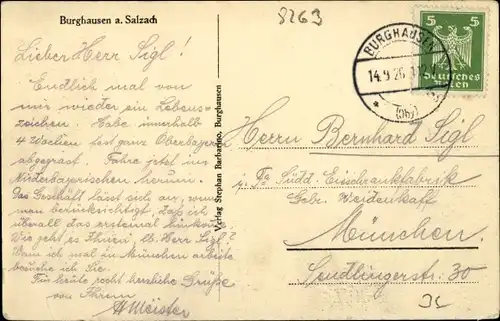 Burghausen a. Salzach
8263
Lieber Herr Sigl!
Endlich mal von
mir wieder ein Lebens-
zeichen. Habe innerhalb
4 Wochen fast ganz Oberbayern
abgegrast. Fahre jetzt im
Niederbayerischen herum.
Das Geschäft lässt sich an, wenn
man berücksichtigt, daß ich
überall das erstemal hinkomme.
Wie geht es Ihnen, lb. Herr Sigl?
Wenn ich mal in München arbeite
besuche ich Sie.
Für heute recht herzliche Grüße
von Ihrem
Meister
Verlag Stephan Barbarino, Burghausen
5 5
Deutsches
Reich
BURGHAUSEN
14.9.26
Herrn Bernhard Sigl
p. Fa. Südd. Eisschrankfabrik
Gebr. Weidenkaff
München.
Sendlingerstr. 30